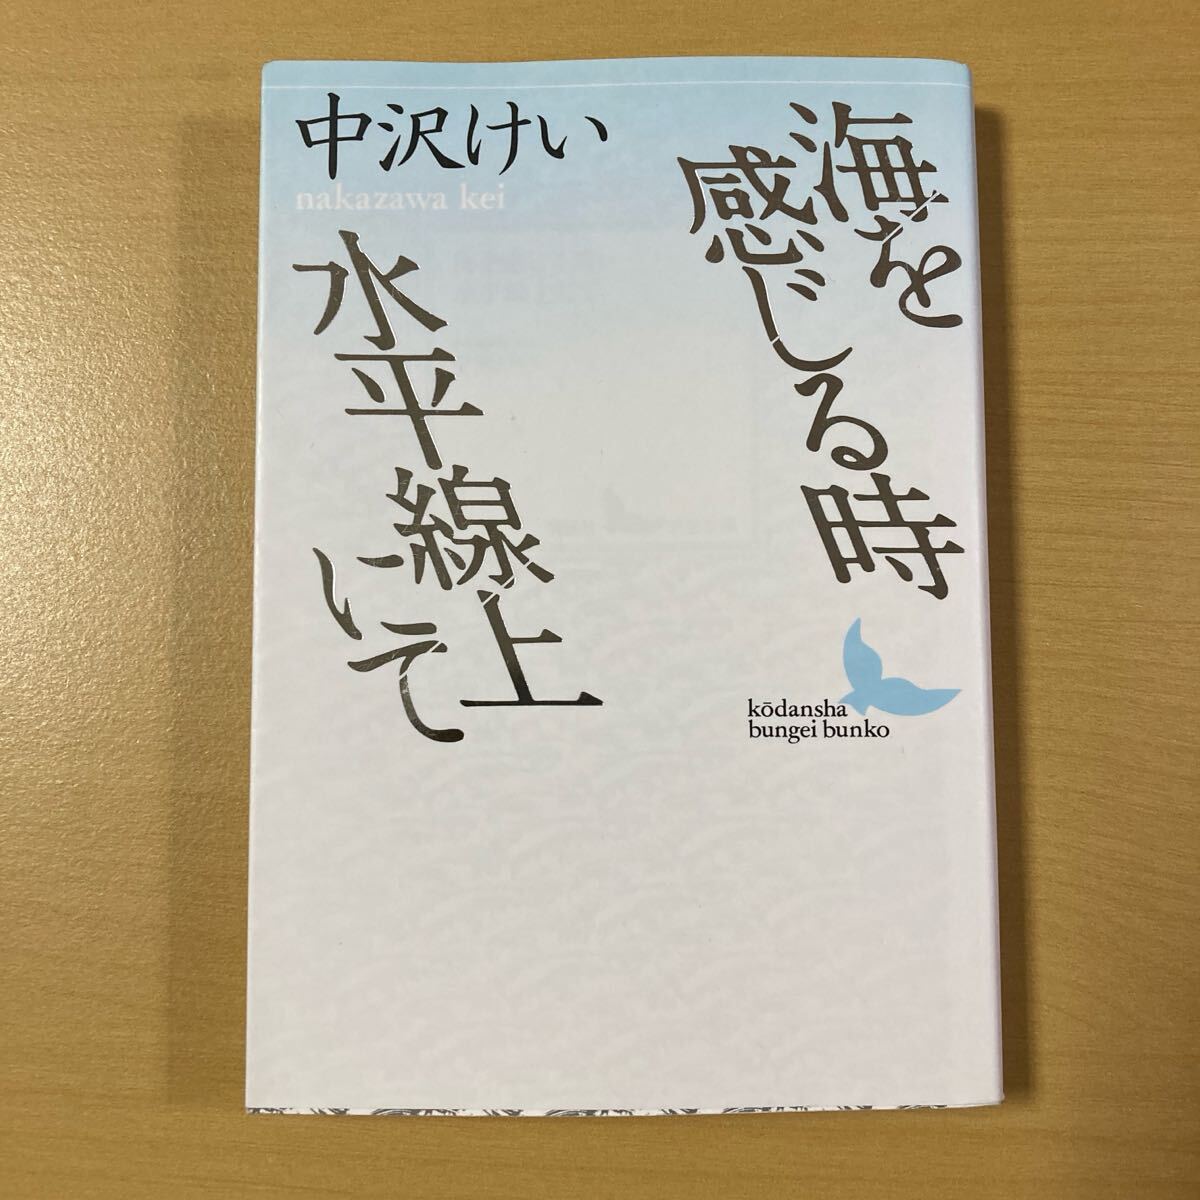 海を
感じる時
中沢けい
nakazawa kei
水平線上
にて
kōdansha
bungei bunko